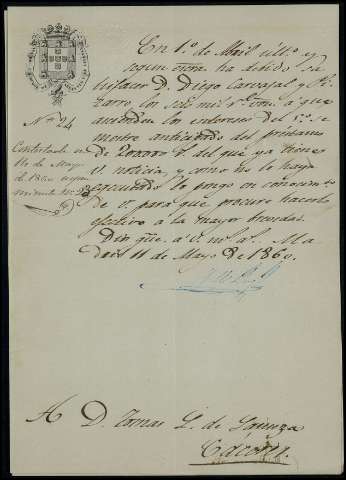 En 1º de Abril últº. y
segun ha debido sa
tisfacer D. Diego Carvajal y Pi
zarro los seis mil rˢ. vⁿ. a que
ascienden los intereses del 1ᵉʳ. se
mestre anticipado del préstamo
de 200000 rˢ. del que ya tienes
V. noticia, y como no lo haya
egecutado lo pongo en conocimtº
de V. para que procure hacerlo
efectivo á la mayor brevedad.
Dios gue. á V. mˢ. aˢ. Ma
drid 11 de Mayo de 1860.
Nº 24
Contestada en
de Mayo
de 1860
A D. Tomas L. de
Cáceres.